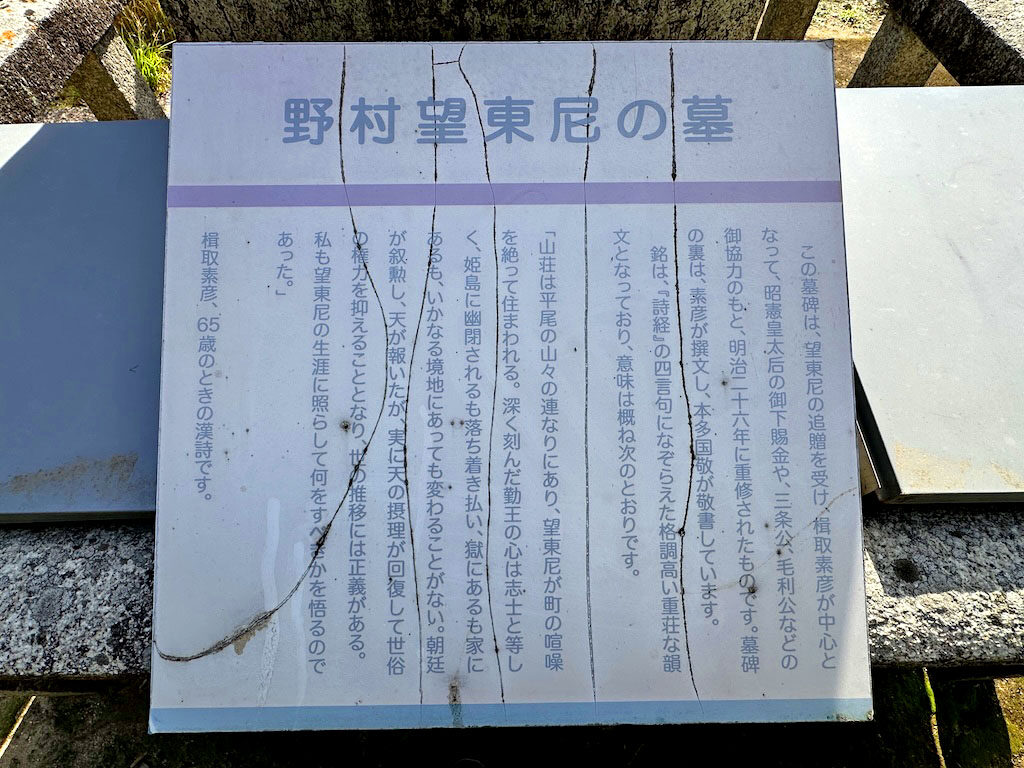 野村望東尼の墓
この墓碑は、望東尼の追贈を受け、楫取素彦が中心と
なって、昭憲皇太后の御下賜金や、三条公、毛利公などの
御協力のもと、明治二十六年に重修されたものです。墓碑
の裏は、素彦が撰文し、本多国敬が敬書しています。
銘は、『詩経』の四言句になぞらえた格調高い重荘な韻
文となっており、意味は概ね次のとおりです。
「山荘は平尾の山々の連なりにあり、望東尼が町の喧噪
を絶って住まわれる。深く刻んだ勤王の心は志士と等し
く、姫島に幽閉されるも落ち着き払い、獄にあるも家に
あるも、いかなる境地にあっても変わることがない。朝廷
が叙勲し、天が報いたが、実に天の摂理が回復して世俗
の権力を抑えることとなり、世の推移には正義がある。
私も望東尼の生涯に照らして何をすべきかを悟るので
あった。」
楫取素彦、65歳のときの漢詩です。